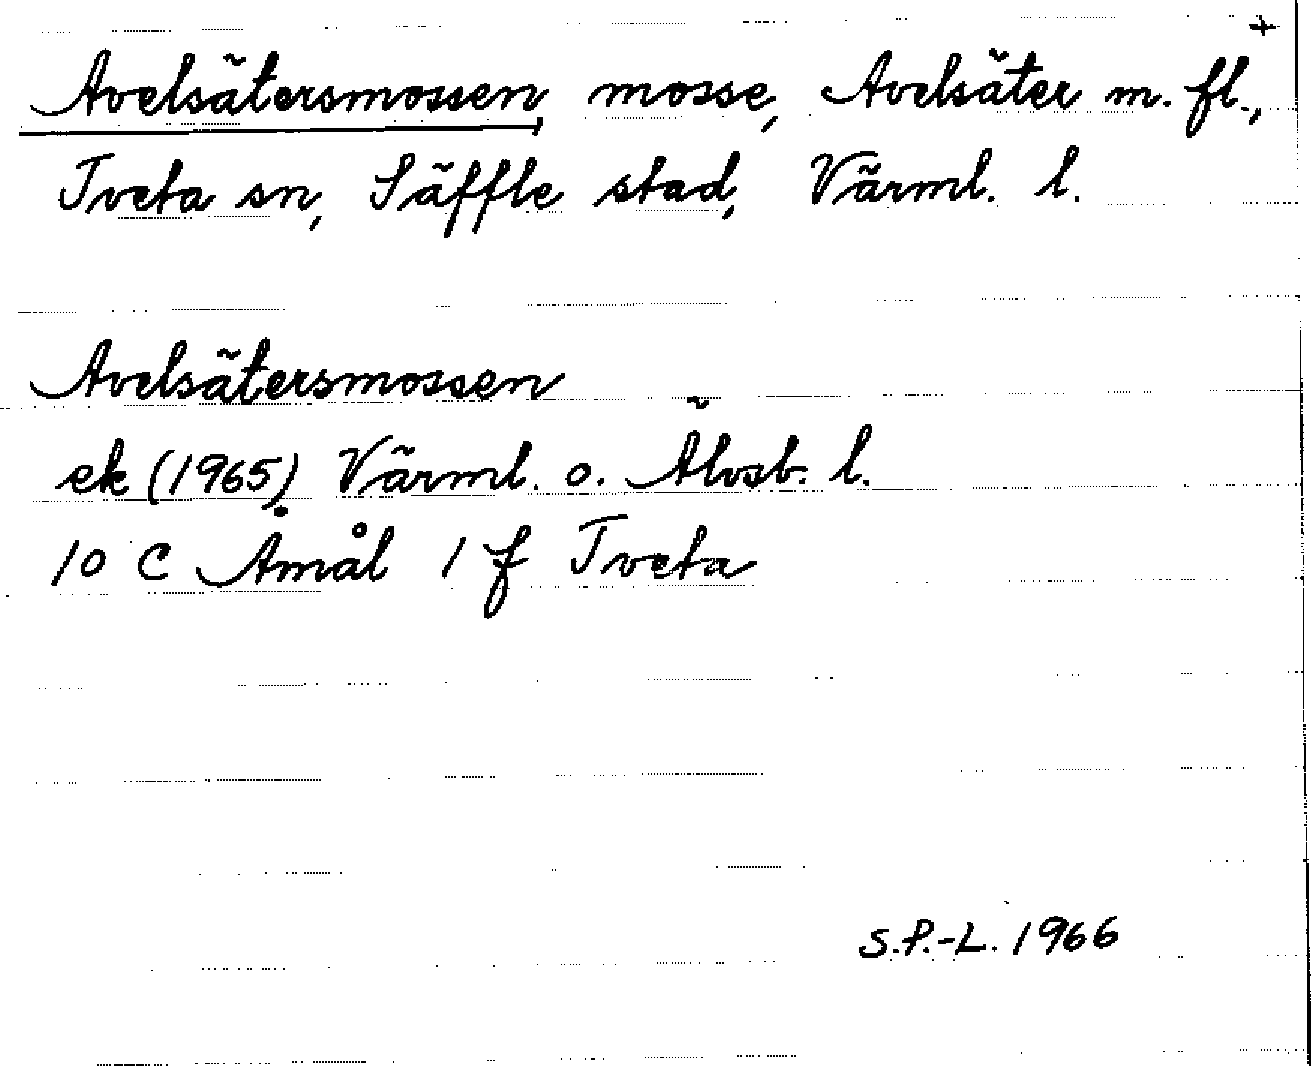 +
Avelsätersmossen, mosse, Avelsäter m. fl.,
Tveta sn, Säffle stad, Värml. l.
Avelsätersmossen
ek (1965) Värml. o. Älvsb. l.
10 C Åmål 1 f Tveta
S.P.-L. 1966